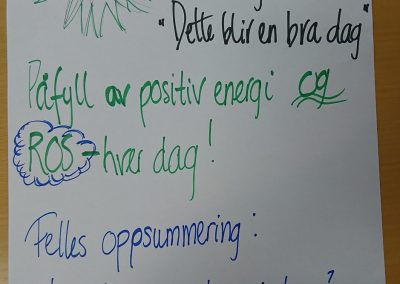 "Dette blir en bra dag"
Påfyll av positiv energi og
ROS - hver dag!
Felles oppsummering: